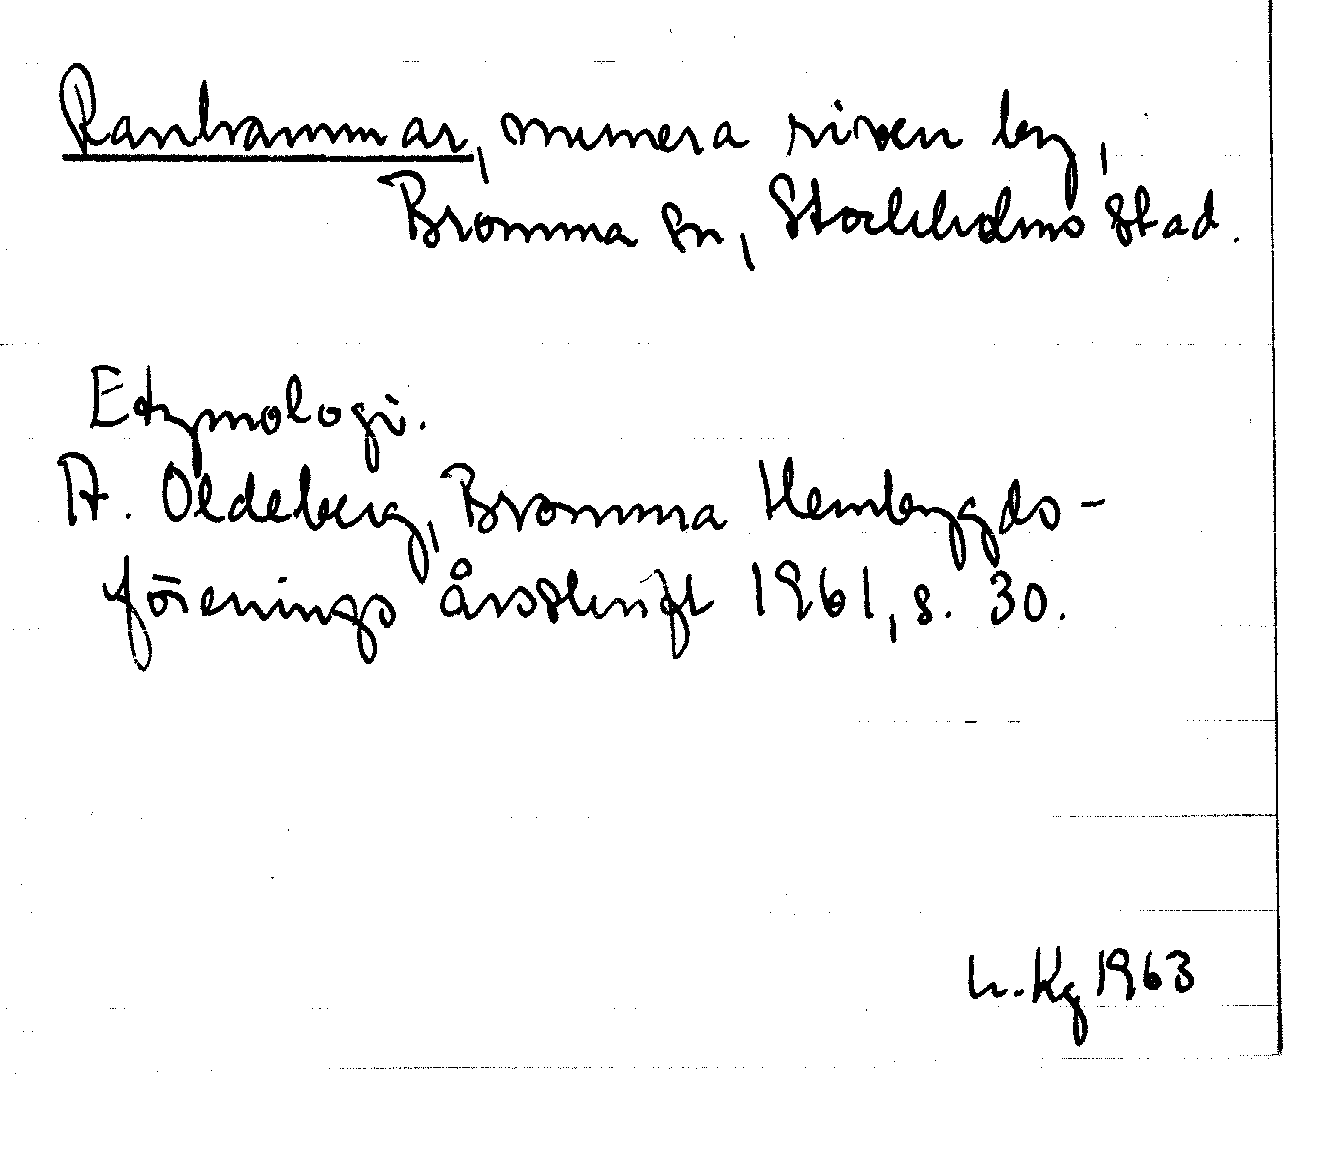 Ranhammar, numera riven by,
Bromma sn, Stockholms stad.
Etymologi.
A. Oldeberg, Bromma Hembygds-
förenings årsskrift 1961, s. 30.
Kg 1963